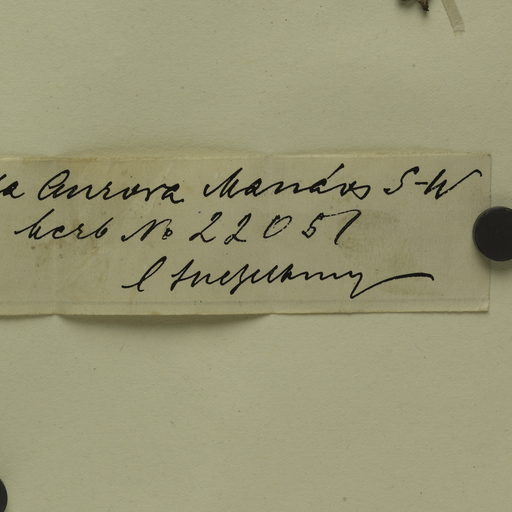 la Aurora Manáos S-W
herb No 22051